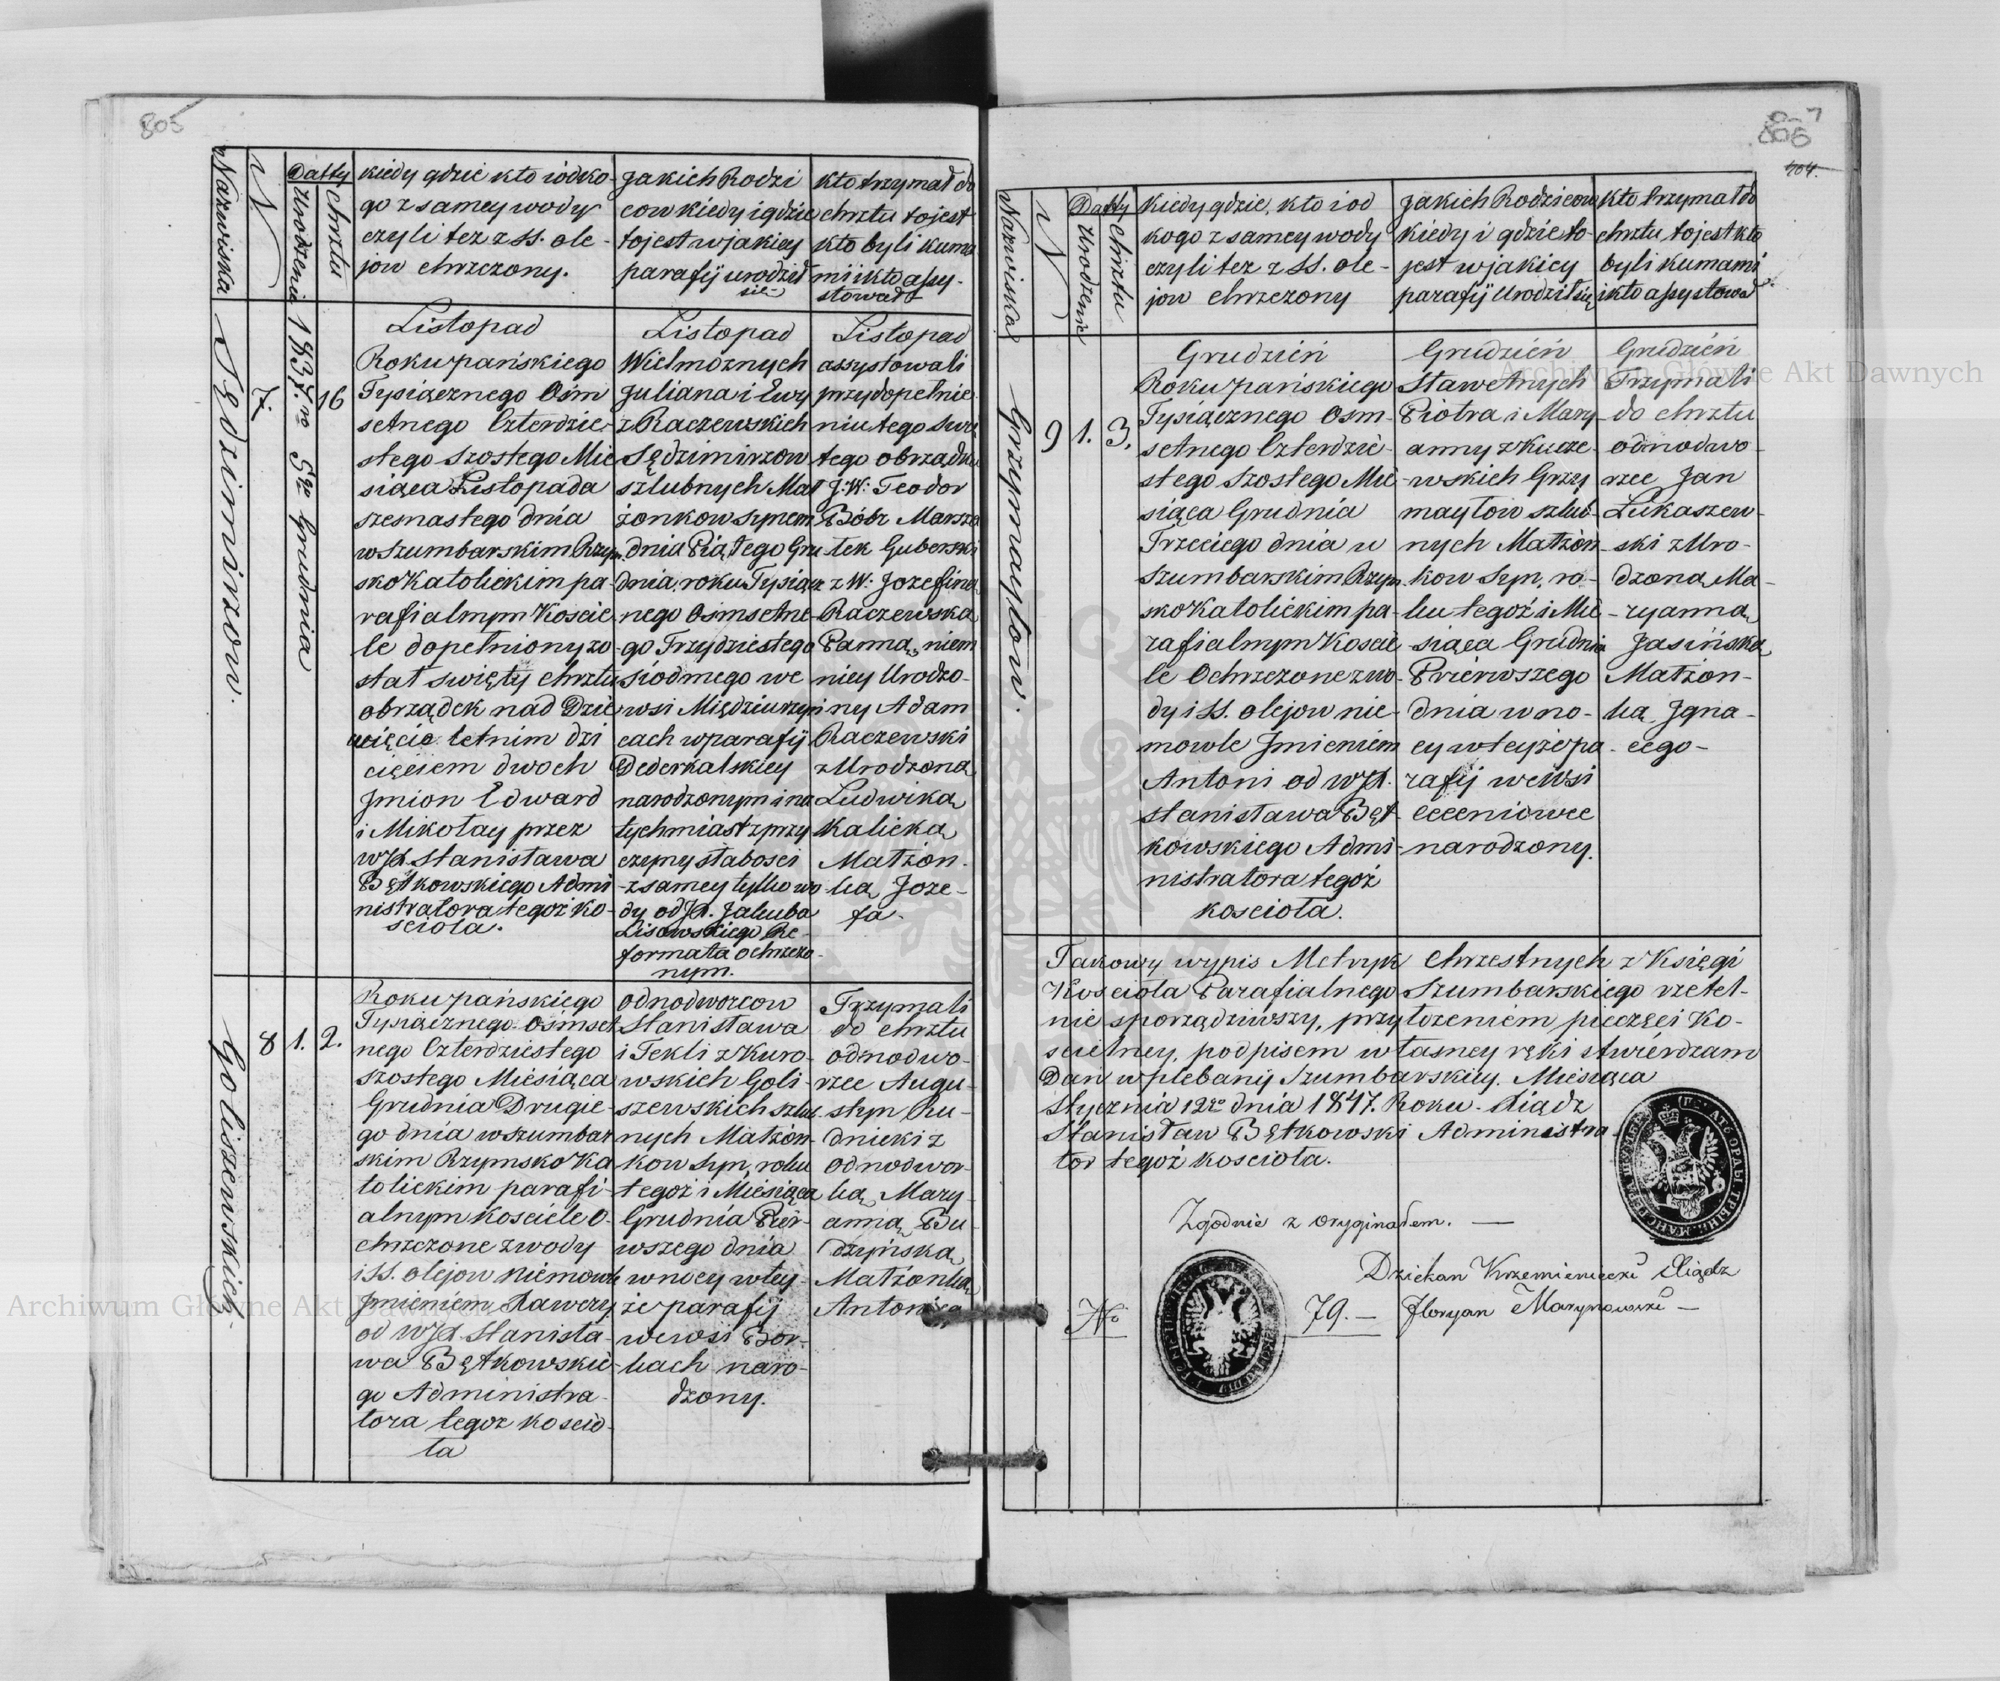 805
Nazwiska
N
Datty
Urodzenia
Chrztu
kiedy gdzie kto i od ko-
go z samey wody
czyli tez z SS. ole-
jow chrzczony.
Jakich Rodzi
cow kiedy i gdzie
to jest w jakiey
parafij urodził
sie
kto trzymał do
chrztu to jest
kto byli kuma
mi i kto assy-
stował
Sędzimirzow.
7.
1837.go 5go Grudnia
16
Listopad
Roku pańskiego
Tysiącznego Ośm
setnego Czterdzie-
stego Szostego Mie
siąca Listopada
szesnastego dnia
w Szumbarskim Rzym
sko Katolickim pa-
rafialnym Koscie
le dopełniony zo-
stał swięty chrztu
obrządek nad Dzie
więcio letnim dzi
cięciem dwoch
Jmion Edward
i Mikołay przez
WJX. Stanisława
Bętkowskiego Admi
nistratora tegoż ko-
scioła.
Listopad
Wielmożnych
Juliana i Ewy
z Raczewskich
Sędzimirzow
szlubnych Mał
żonkow synem
dnia Piątego Gru
dnia, roku Tysiącz
nego Osmsetne-
go Trzydziestego
siódmego we
wsi Międziurzyn
cach w parafij
Dederkalskiey
narodzonym i na
tychmiast z przy
czyny słabosci
z samey tylko wo
dy od JX. Jakuba
Lisowskiego Re-
formata ochrzczo-
nym.
Listopad
assystowali
przy dopełnie-
niu tego swię
tego obrządku
J: W: Teodor
Bóbr Marsza
łek Guberski
z W: Jozefiną
Raczewską
Panną, niem
niey Urodzo-
ny Adam
Raczewski
z Urodzoną
Ludwiką
Kalicką
Małżon-
ką Joze-
fa.
Goliszewskich.
8
1.
2.
Roku pańskiego
Tysiącznego Osmset
nego Czterdziestego
szostego Miesiąca
Grudnia Drugie-
go dnia w Szumbar
skim Rzymsko Ka
tolickim parafi-
alnym Kosciele O-
chrzczone z wody
i SS. olejow niemowle
Jmieniem Xawery
od WJX. Stanisła-
wa Bętkowskie-
go Administra-
tora tegoż koscio-
ła
odnodworcow
Stanisława
i Tekli z Kuro-
wskich Goli-
szewskich szlub-
nych Małżon-
kow syn, roku
tegoż i Miesiąca
Grudnia Pier-
wszego dnia
w nocy w tey-
że parafij
we wsi Bor-
kach naro-
dzony.
Trzymali
do chrztu
odnodwo-
rzec Augu-
styn Ru-
dnicki z
odnodwor-
ką Mary-
anną Bu-
dzyńską
Małżonką
Antoniego
806
704.
Nazwiska
N
Datty
Urodzenia
Chrztu
kiedy gdzie, kto i od
kogo z samey wody
czyli tez z SS. ole-
jow chrzczony
Jakich Rodzicow
kiedy i gdzie to-
jest w jakiey
parafij Urodził się
kto trzymał do
chrztu, to jest kto
byli kumami
i kto assystował
Grzymaytow.
9
1.
3.
Grudzień
Roku pańskiego
Tysiącznego Osm-
setnego Czterdzie-
stego szostego Mie-
siąca Grudnia
Trzeciego dnia w
Szumbarskim Rzym
sko Katolickim pa-
rafialnym Koscie
le Ochrzczone z wo-
dy i SS. olejow nie-
mowle Jmieniem
Antoni od WJX.
Stanisława Bęt-
kowskiego Admi-
nistratora tegoż
kościoła.
Grudzień
Sławetnych
Piotra i Mary-
anny z Kucze-
wskich Grzy
maytow szlub-
nych Małżon-
kow Syn, ro-
ku tegoż i Mie-
siąca Grudnia
Pierwszego
dnia w no-
cy w teyże pa-
rafij we wsi
narodzony.
Grudzień
Trzymali
do chrztu
odnodwo-
rzec Jan
Łukaszew-
ski z Uro-
dzoną Ma-
ryanną
Jasińską
Małżon-
ką Jgna-
cego-
Takowy wypis Metryk chrzestnych z Księgi
Koscioła Parafialnego Szumbarskiego rzetel-
nie sporządziwszy, przyłożeniem pieczęci Ko-
scielney, podpisem własney ręki stwierdzam
Dan w plebanij Szumbarskiey. Miesiąca
Stycznia 12go dnia 1847. Roku. Xiądz
Stanisław Bętkowski Administra-
tor tegoż koscioła.
Zgodnie z oryginałem. —
Dziekan Krzemieniecki Xiądz
No 79.— Floryan Marynowski —
Archiwum Główne Akt Dawnych
Archiwum Główne Akt